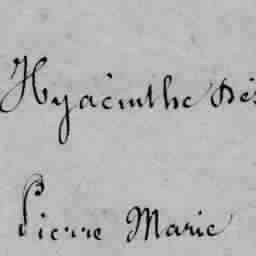 Hyacinthe Dés
Pierre Marie